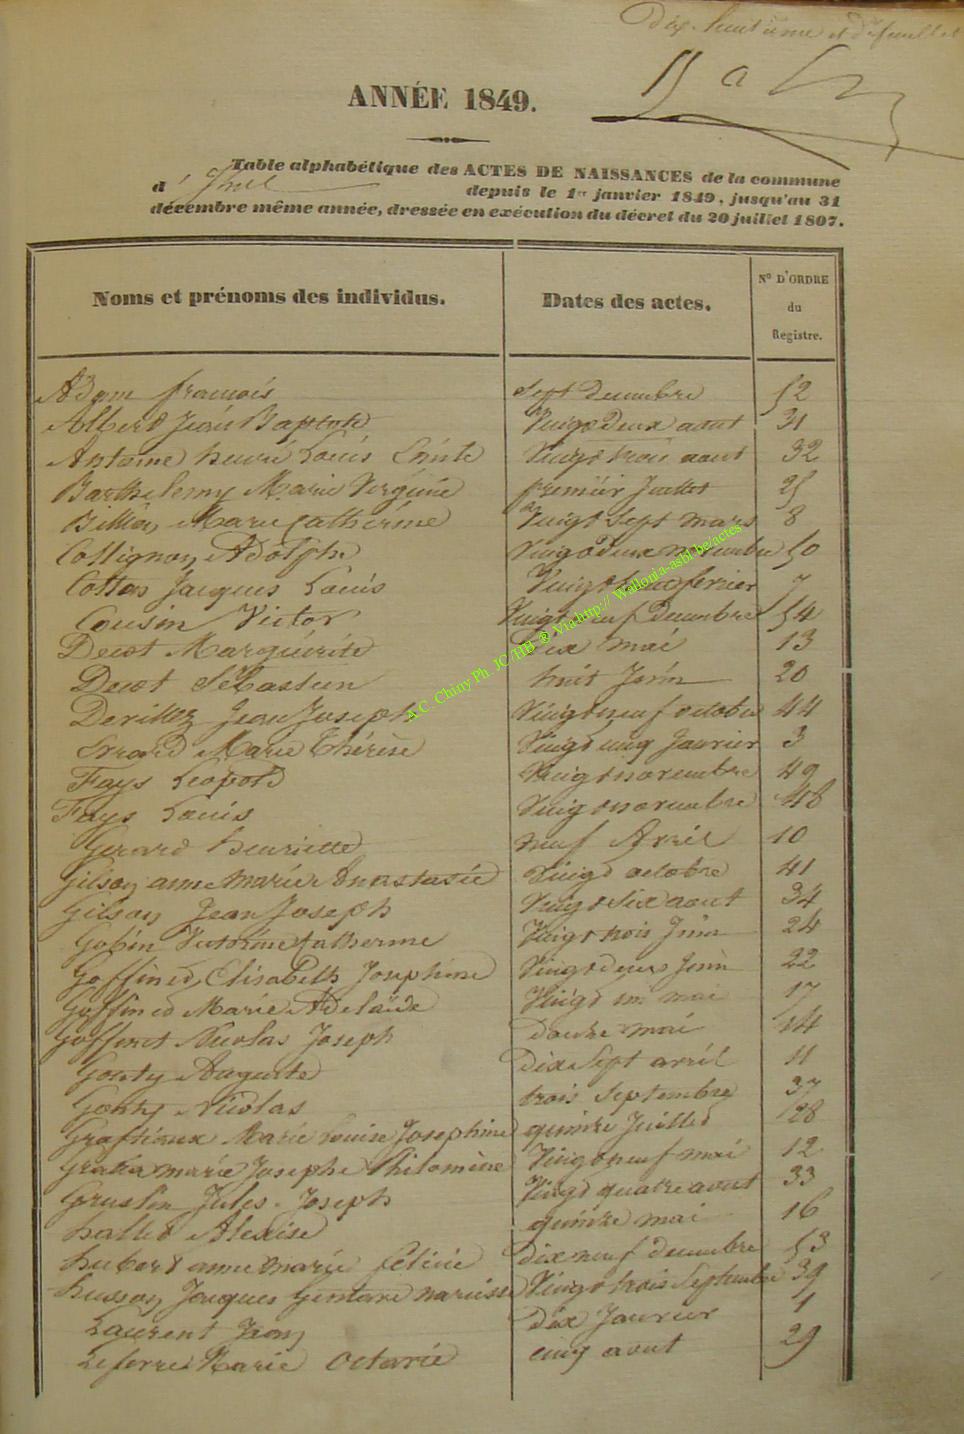 Dix huitième et d feuillet
ANNÉE 1849.
Table alphabétique des ACTES DE NAISSANCES de la commune
d' depuis le 1er janvier 1849, jusqu'au 31
décembre même année, dressée en exécution du décret du 20 juillet 1807.
Noms et prénoms des individus. Dates des actes. N° D'ORDRE du Registre.
Adam françois Sept Decembre 52
Albert Jean Baptiste Vingt Deux aout 31
Antoine henri Louis Vingt trois aout 32
Barthelemy Marie Virginie premier Juillet 25
Billion Marie Catherine Vingt Sept mars 8
Collignon Adolphe Vingt Deux novembre 50
Collas Jacques Louis Vingt fevrier 7
Cousin Victor Vingt neuf Decembre 54
Decot Marguérite Dix mai 13
Decot Sébastien huit Juin 20
Derillez Jean Joseph Vingt neuf octobre 44
Evrard Marie Thérèse Vingt cinq Janvier 3
Fays Léopold Vingt novembre 49
Fays Louis Vingt novembre 48
Gerard henriette neuf Avril 10
Gilson anne marie Anastasie Vingt octobre 41
Gilson Jean Joseph Vingt Six aout 34
Gobin Victorine Catherine Vingt trois Juin 24
Goffinet Elisabeth Josephine Vingt deux Juin 22
Goffinet Marie Adelaïde Vingt un mai 17
Goffinet Nicolas Joseph douze mai 14
Gonty Auguste Dix Sept avril 11
Gonty Nicolas trois Septembre 37
Graftiaux Marie Louise Josephine quinze Juillet 28
Graka marie Josephe Philomène Vingt neuf mai 12
Gruslin Jules Joseph Vingt quatre aout 33
hallet Alexise quinze mai 16
hubert anne marie Céline dix neuf decembre 53
husson Jacques narcisse Vingt trois Septembre 39
Laurent Jean dix Janvier 1
Leferre Marie Octavie cinq aout 29
A.C. Chiny Ph. JC/HB ® Via http:// Wallonia-asbl.be/actes